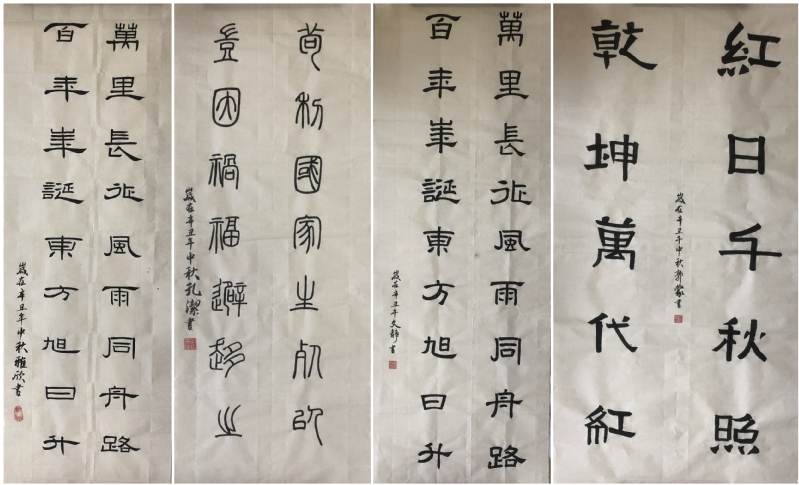 萬里長征風雨同舟路
百年華誕東方旭日升
歲在辛丑年中秋雅欣書
苟利國家生死以
豈因禍福避趨之
歲在辛丑年中秋孔潔書
萬里長征風雨同舟路
百年華誕東方旭日升
歲在辛丑年文靜書
紅日千秋照
乾坤萬代紅
歲在辛丑年中秋郭蒙書